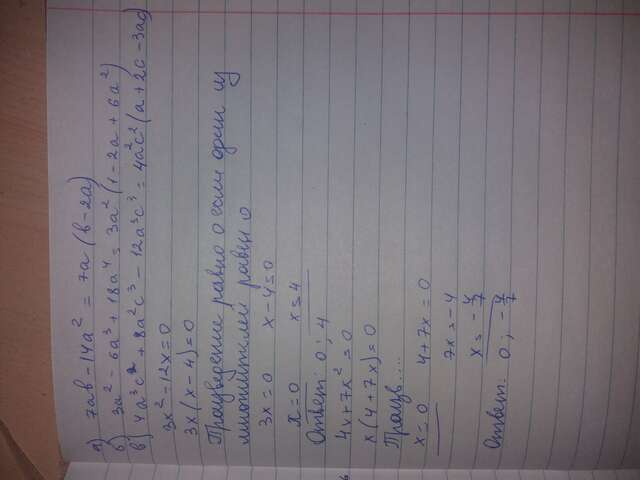 а) 7ab - 14a² = 7a (b - 2a)
б) 3a² - 6a³ + 18a⁴ = 3a² (1 - 2a + 6a²)
в) 4a³c² + 8a²c³ - 12a³c³ = 4a²c² (a + 2c - 3ac)
3x² - 12x = 0
3x (x - 4) = 0
Произведение равно 0 если один из
множителей равен 0
3x = 0 x - 4 = 0
x = 0 x = 4
Ответ: 0 ; 4
4x + 7x² = 0
x (4 + 7x) = 0
Произв....
x = 0 4 + 7x = 0
7x = -4
x = -4/7
Ответ: 0 ; -4/7